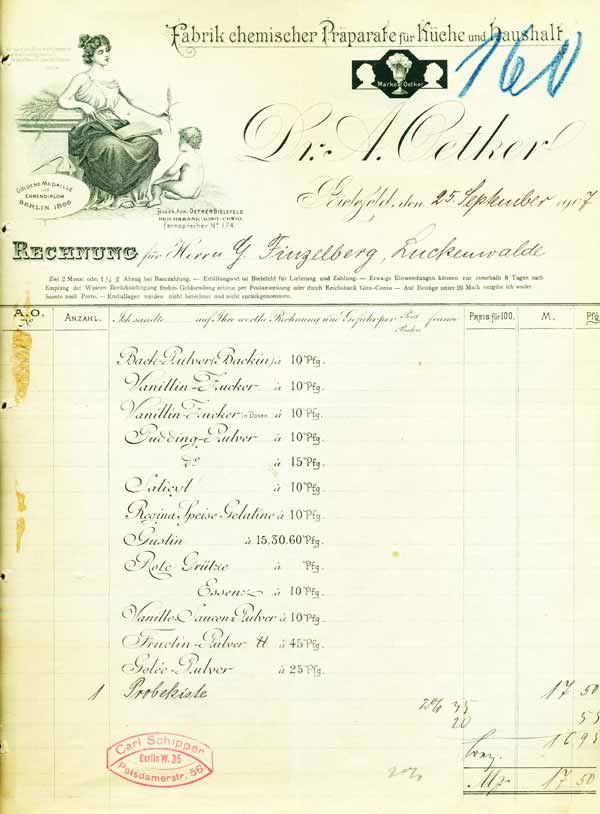 Fabrik chemischer Präparate für Küche und Haushalt.
160
Marke Oetker
Dr. A. Oetker
GOLDENE MEDAILLE
UND
EHRENDIPLOM
BERLIN 1896
OETKER BIELEFELD.
REICHSBANK-GIRO-CONTO
Fernsprecher No 174.
Bielefeld, den 25. September 1907
RECHNUNG für Herrn G. Finzelberg, Luckenwalde
Ziel 2 Monat oder 1½ % Abzug bei Barzahlung. — Erfüllungsort ist Bielefeld für Lieferung und Zahlung. — Etwaige Einwendungen können nur innerhalb 8 Tagen nach
Empfang der Waaren Berücksichtigung finden. Geldsendung erbitte per Postanweisung oder durch Reichsbank Giro-Conto — Auf Beträge unter 20 Mark vergüte ich weder
Sconto noch Porto. — Emballagen werden nicht berechnet und nicht zurückgenommen.
A.O. No ANZAHL. Ich sandte auf Ihre werthe Rechnung und Gefahr per Post Bahn franco PREIS für 100. M. Pfg
Back-Pulver (Backin) à 10 Pfg.
Vanillin-Zucker à 10 Pfg.
Vanillin-Zucker in Dosen à 10 Pfg.
Pudding-Pulver à 10 Pfg.
do à 15 Pfg.
Salicyl à 10 Pfg.
Regina Speise Gelatine à 10 Pfg.
Gustin à 15, 30, 60 Pfg.
Rote Grütze à Pfg.
Essenz à 10 Pfg.
Vanille-Saucen-Pulver à 10 Pfg.
Fructin-Pulver ℔ à 45 Pfg.
Gelée-Pulver à 25 Pfg.
1 Probekiste 17 50
2% 35
20 55
16 95
17 50
2%
Carl Schipper
Berlin W. 35
Potsdamerstr. 56